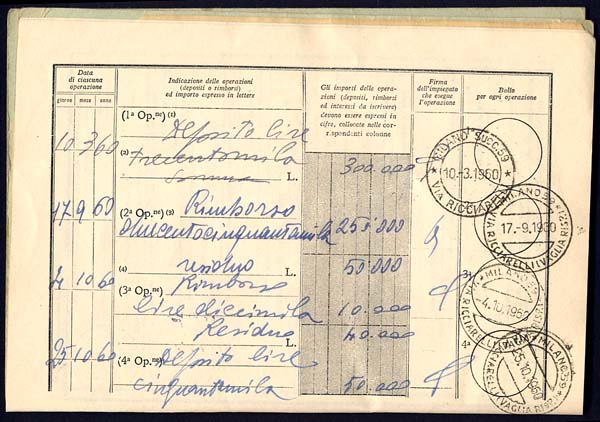 Data
di ciascuna
operazione
giorno mese anno
Indicazione delle operazioni
(depositi o rimborsi)
ed importo espresso in lettere
Gli importi delle opera-
zioni (depositi, rimborsi
ed interessi da iscrivere)
devono essere espressi in
cifre, collocate nelle cor-
rispondenti colonne
Firma
dell'impiegato
che esegue
l'operazione
Bollo
per ogni operazione
(1ª Op.ne) (2) Deposito lire
10 3 60
(2) trecentomila
L. 300.000
MILANO SUCC. 59
10.-3.1960
VIA RICCIARELLI
17 9 60
(2ª Op.ne) (3) Rimborso
duecentocinquantamila 250'000
MILANO 59
17.-9.1960
VIA RICCIARELLI (VAGLIA RISP.)
(4) residuo L. 50'000
4 10 60
(3ª Op.ne) Rimborso
lire diecimila 10.000
Residuo 40.000
3)
MILANO 59
-4.10.1960
VIA RICCIARELLI
25 10 60
(4ª Op.ne) Deposito lire
cinquantamila 50.000
4ª
MILANO 59
25.10.1960
(VAGLIA RISP.)